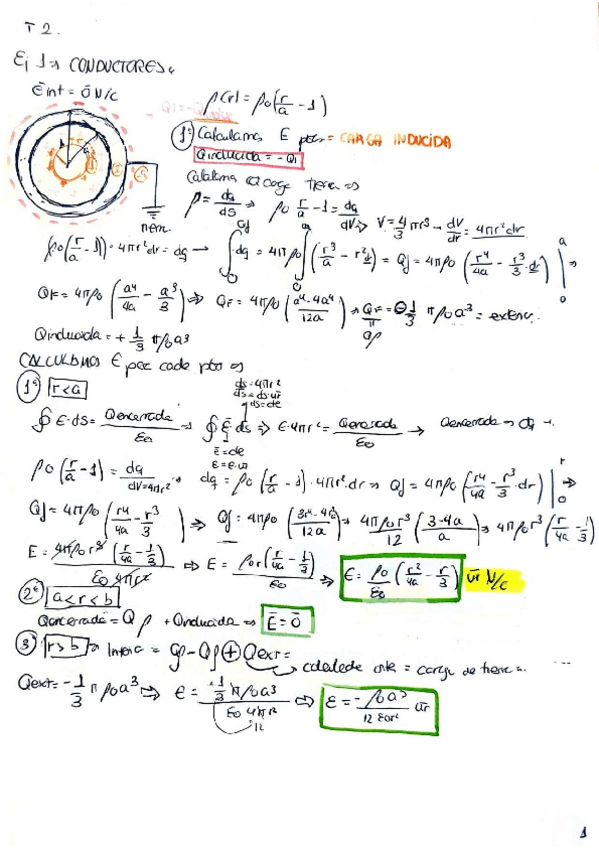 T 2.
Ej 1 → CONDUCTORES.
Ēint = 0̄ N/C
ρ(r) = ρ0(r/a - 1)
1º Calculamos E ptos = CARGA INDUCIDA
Qinducida = -Q1
ρ = dq/dS → ρ0 r/a - 1 = dq/dV → V = 4/3 πr³ → dV/dr = 4πr²dr
ρ0(r/a - 1) = 4πr²dr = dq → ∫dq = 4πρ0∫(r³/a - r²) = Qf = 4πρ0(r⁴/4a - r³/3 dr)
QF = 4πρ0(a⁴/4a - a³/3) ⇒ QF = 4πρ0(a⁴-4a⁴/12a) ⇒ QF = -1/3 πρ0a³ =
Qinducida = + 1/3 πρ0a³
CALCULAMOS E por cada pto ⇒
1º r < a
ds = 4πr²
∮E·dS = Qencerrada/ε0 ⇒ ∮Ē ds ⇒ E·4πr² = Qencerrada/ε0 → Qencerrada → dq
Ē = cte
ρ0(r/a - 1) = dq/dV=4πr² → dq = ρ0(r/a - 1)·4πr²dr ⇒ Qf = 4πρ0(r⁴/4a - r³/3·dr)
Qf = 4πρ0(r⁴/4a - r³/3) ⇒ Qf = 4πρ0(3r⁴-4r³a/12a) → 4πρ0r³/12 (3-4a/a) ⇒ 4πρ0r³(r/4a - 1/3)
E = 4πρ0r³(r/4a - 1/3)/ε0 4πr² ⇒ E = ρ0r(r/4a - 1/3)/ε0 ⇒ E = ρ0/ε0 (r²/4a - r/3) ūr N/C
2º a < r < b
Qencerrada = Qρ + Qinducida ⇒ Ē = 0̄
3º r > b → = Qρ - Qρ ⊕ Qext =
calculada ante = carga de tierra
Qext = -1/3 πρ0a³ ⇒ E = -1/3 πρ0a³/ε0 4πr² ⇒ E = -ρ0a³/12ε0r² ūr
12
1